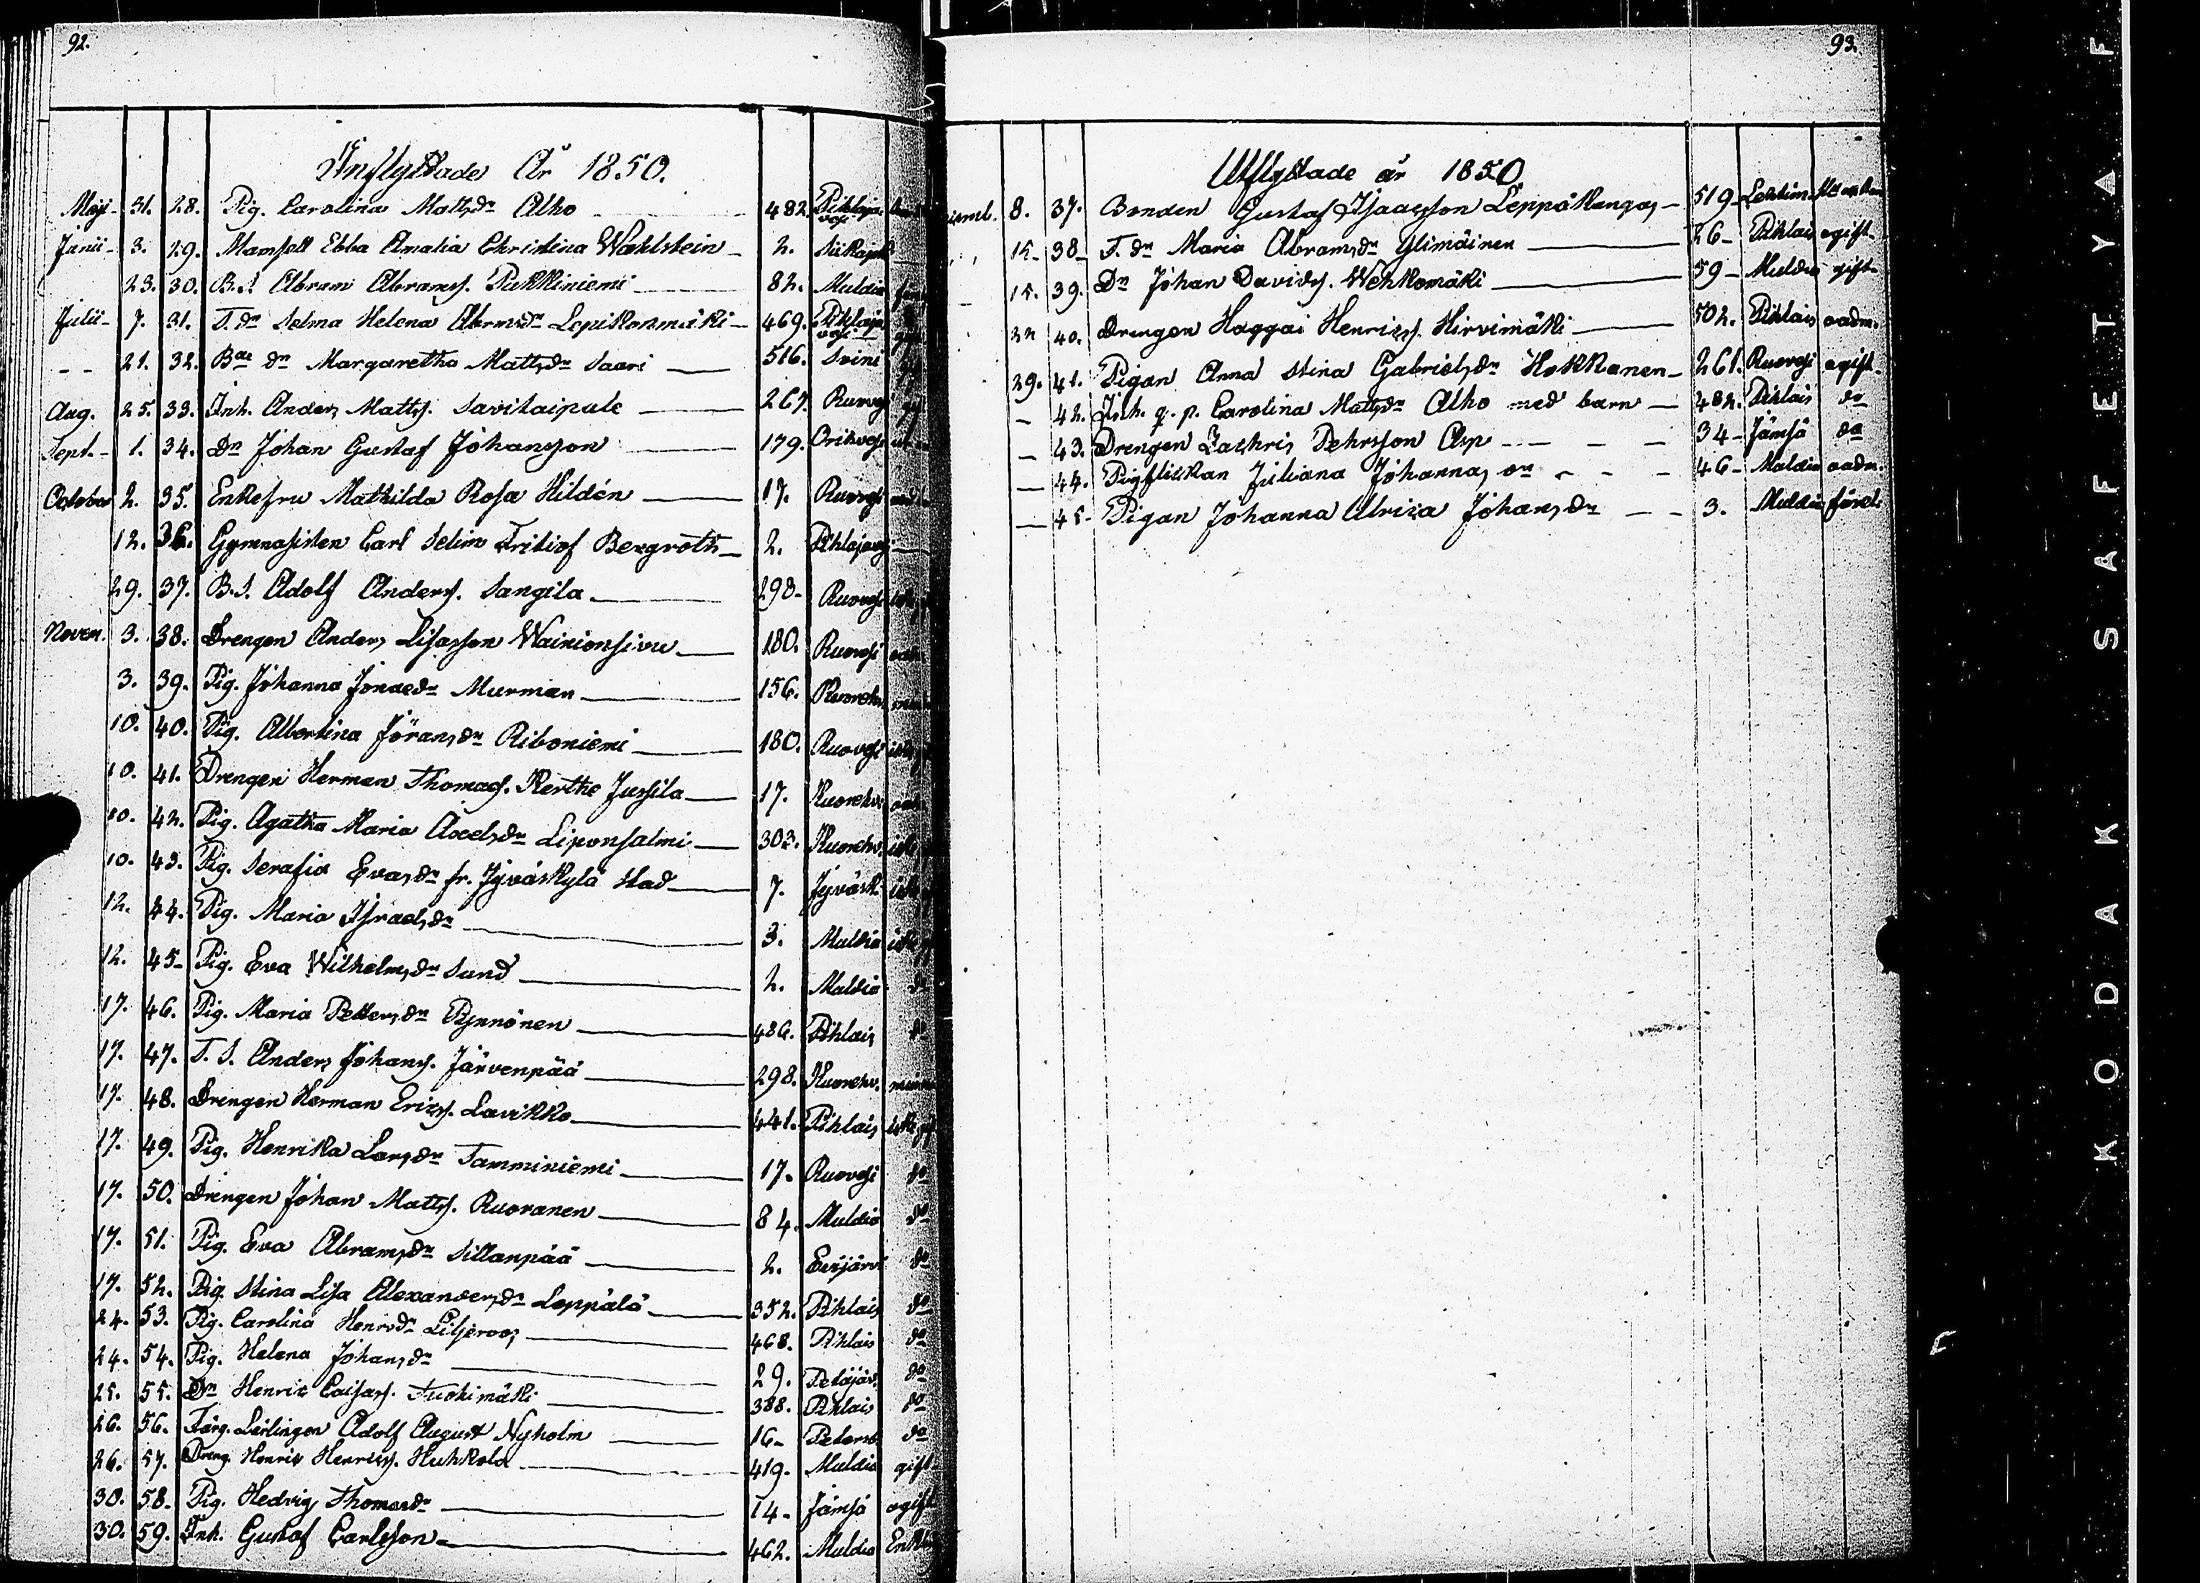 92.
Inflyttade År 1850.
Maji 31. 28. Pig. Carolina Mattsdr Alho 482. Pihlajavesi
Junii 3. 29. Mamsell Ebba Amalia Christina Wahlstein 2.
23. 30. B.S. Abram Abramss. Pukkiniemi 82. Muldia
Julii 7. 31. T. dr Selma Helena Abrmsdr Lepikonmäki 469. Pihlajavesi
- - 21. 32. Bde dr Margaretha Mattsdr Saari 516.
Aug. 25. 33. Inh. Anders Mattss. Savilaipale 267. Ruovesi
Sept. 1. 34. Dr Johan Gustaf Johansson 179. Orihvesi
October 2. 35. Enkefru Mathilda Rosa Hildén 17. Ruovesi
12. 36. Gymnasisten Carl Selim Fritiof Bergroth 2. Pihlajavesi
29. 37. B.S. Adolf Anderss. Sangila 298. Ruovesi
Novem. 3. 38. Drengen Anders Lisasson Wainionsivu 180. Ruovesi
3. 39. Pig. Johanna Jonaedr Murman 156. Kuorehv.
10. 40. Pig. Albertina Jöransdr Riboniemi 180. Ruovesi
10. 41. Drengen Herman Thomass. Kerthe Jussila 17. Kuorehv.
10. 42. Pig. Agatha Maria Axelsdr Liponsalmi 303. Kuorehv.
10. 43. Pig. Serafia Evasdr fr. Jyväskylä stad 7. Jyväsk.
12. 44. Pig. Maria Israelsdr 3. Muldia
12. 45. Pig. Eva Wilhelmsdr Sund 2. Muldia do
17. 46. Pig. Maria Pettersdr Pynnönen 486. Pihlais do
17. 47. T. S. Anders Johanss. Järvenpää 298. Kuorehv.
17. 48. Drengen Herman Ericss. Lavikko 441. Pihlais
17. 49. Pig. Henrika Larsdr Tamminiemi 17. Ruovesi do
17. 50. Drengen Johan Mattss. Ruoranen 84. Muldia do
17. 51. Pig. Eva Abramsdr Sillanpää 2. Eväjärvi do
17. 52. Pig. Stina Lisa Alexandersdr Leppälä 352. Pihlais do
24. 53. Pig. Carolina Henrsdr Liljeroos 468. Pihlais do
24. 54. Pig. Helena Johansdr 29. Petäjäv. do
25. 55. Dr Henric Caisass. Tuohimäki 388. Pihlais do
26. 56. Färg. Lärlingen Adolf August Nyholm 16. Petersb. do
26. 57. Dreng. Henric Henricss. Huhkola 419. Muldia gift
30. 58. Pig. Hedvig Thomasdr 14. Jämsä ogift
30. 59. Inh. Gustaf Carlsson 462. Muldia
93.
Utflyttade år 1850
8. 37. Bonden Gustaf Isaacsson Leppäkangas 519
15. 38. T. dr Maria Abramsdr Ylimäinen 26 Pihlais ogift
15. 39. Dr Johan Davidss. Wehkomäki 59 Muldia gift
22 40. Drengen Haggai Henricss. Hirvimäki 502. Pihlais oadm.
29. 41. Pigan Anna Stina Gabrielsdr Hokkanen 261. Ruovesi ogift
42. Inh. q. p. Carolina Mattsdr Alho med barn 482. Pihlais do
43. Drengen Zachris Pehrsson Asp 34 Jämsä do
44. Pigflickan Juliana Johannas dr 46 Muldia oadm.
45. Pigan Johanna Ulrica Johansdr 3. Muldia
KODAK SAFETY